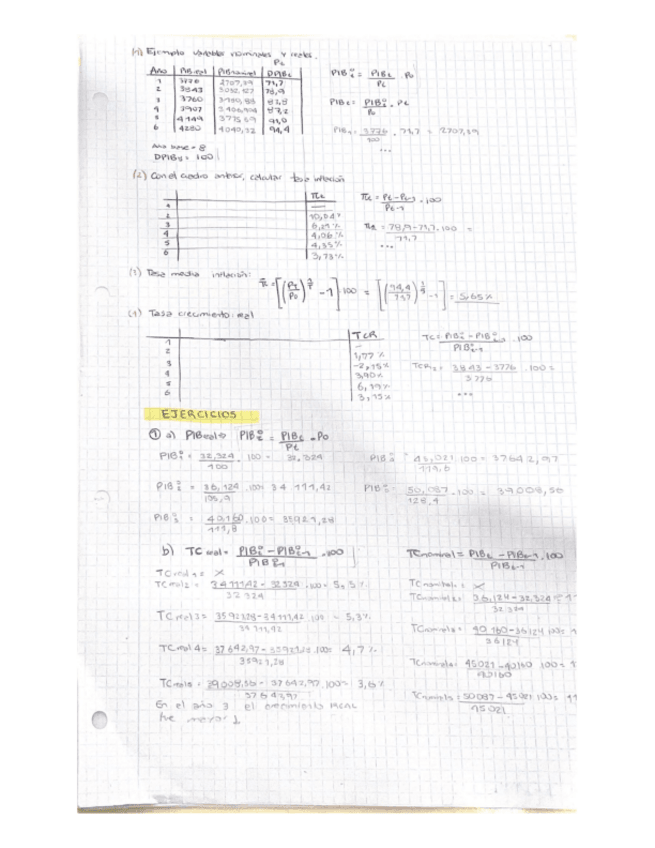 (1) Ejemplo variables nominales y reales.
Pt
Año PIBreal PIBnominal DPIBt
1 3776 2707,39 71,7
2 3843 78,9
3 3760
4 3907 87,2
5 4149 91,0
6 4280 4040,32 94,4
PIBºt = PIBt / Pt · P0
PIBt = PIBºt / P0 · Pt
PIB1 = 3776 / 100 · 71,7 = 2707,39
...
Año base = 8
DPIB8 = 100
(2) Con el cuadro anterior, calcular tasa inflación
πt
1 —
2 10,04%
3
4 4,06%
5 4,35%
6 3,73%
πt = Pt - Pt-1 / Pt-1 · 100
π2 = 78,9 - 71,7 / 71,7 · 100 =
...
(1) Tasa media inflación:
- 1] · 100 = = 5,65%
(1) Tasa crecimiento real
TCR
1 —
2 1,77%
3 -2,15%
4 3,90%
5 6,19%
6 3,15%
TC = PIBºt - PIBºt-1 / PIBºt-1 · 100
TCR2 = 3843 - 3776 / 3776 · 100 =
...
EJERCICIOS
① a) PIBreal ⇒ PIBºt = PIBt / Pt · P0
PIBº1 = 32,324 / 100 · 100 = 32,324
PIBº2 = 36,124 / 105,9 · 100 = 34 111,42
PIBº3 = 40,160 / 111,8 · 100 = 35921,28
PIBº4 = 45,021 / 119,6 · 100 = 37642,97
PIBº5 = 50,087 / 128,4 · 100 = 39008,56
b) TC real = PIBºt - PIBºt-1 / PIBºt-1 · 100
TC real 1 = X
TC real 2 = 34111,42 - 32324 / 32324 · 100 = 5,5%
TC real 3 = 35921,28 - 34111,42 / 34111,42 · 100 = 5,3%
TC real 4 = 37642,97 - 35921,28 / 35921,28 · 100 = 4,7%
TC real 5 = 39008,56 - 37642,97 / 37642,97 · 100 = 3,6%
En el año 3 el crecimiento REAL
fue mayor
TC nominal = PIBt - PIBt-1 / PIBt-1 · 100
TC nominal 1 = X
TC nominal 2 = 36,124 - 32,324 / 32 324
TC nominal 3 = 40 160 - 36124 / 36124 · 100 =
TC nominal 4 = 45021 - 40160 / 40160 · 100 =
TC nominal 5 = 50087 - 45021 / 45021 · 100 =